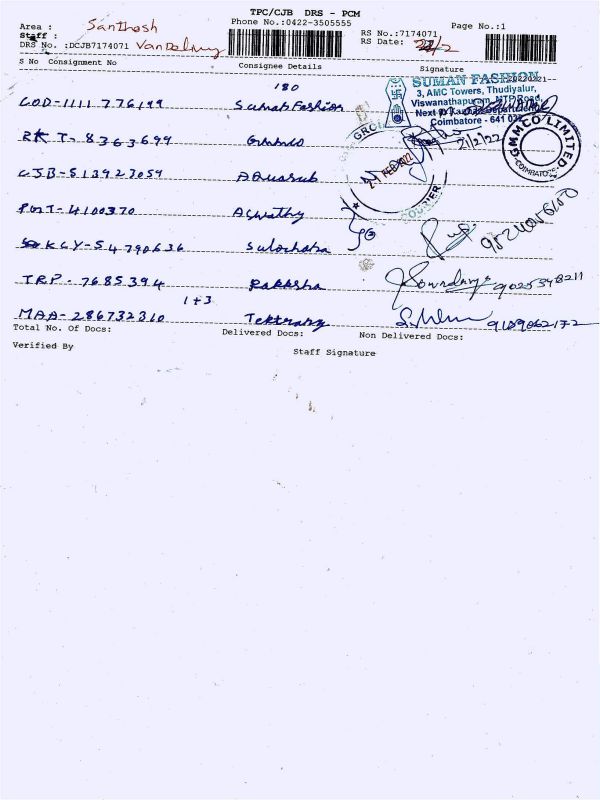 TPC/CJB DRS - PCM
Area : Santhosh
Phone No.:0422-3505555
Page No.:1
Staff :
RS No.:7174071
DRS No. :DCJB7174071
RS Date: 21/2
S No Consignment No
Consignee Details
Signature
180
SUMAN FASHION
3, AMC Towers, Thudiyalur,
Viswanathapuram, NTP Road,
Coimbatore - 641 022
COD-1111776199
Suman Fashion
21/2/22
RKT-8363699
Gmmco
GMMCO LIMITED
COIMBATORE
21 FEB 2022
COURIER
CJB-513927059
PNT-4100370
Aswathy
9524048600
KCY-54790636
Sulochana
TRP-7685394
Rakksha
9025398211
1+3
MAA-286732310
9109062172
Total No. Of Docs:
Delivered Docs:
Non Delivered Docs:
Verified By
Staff Signature